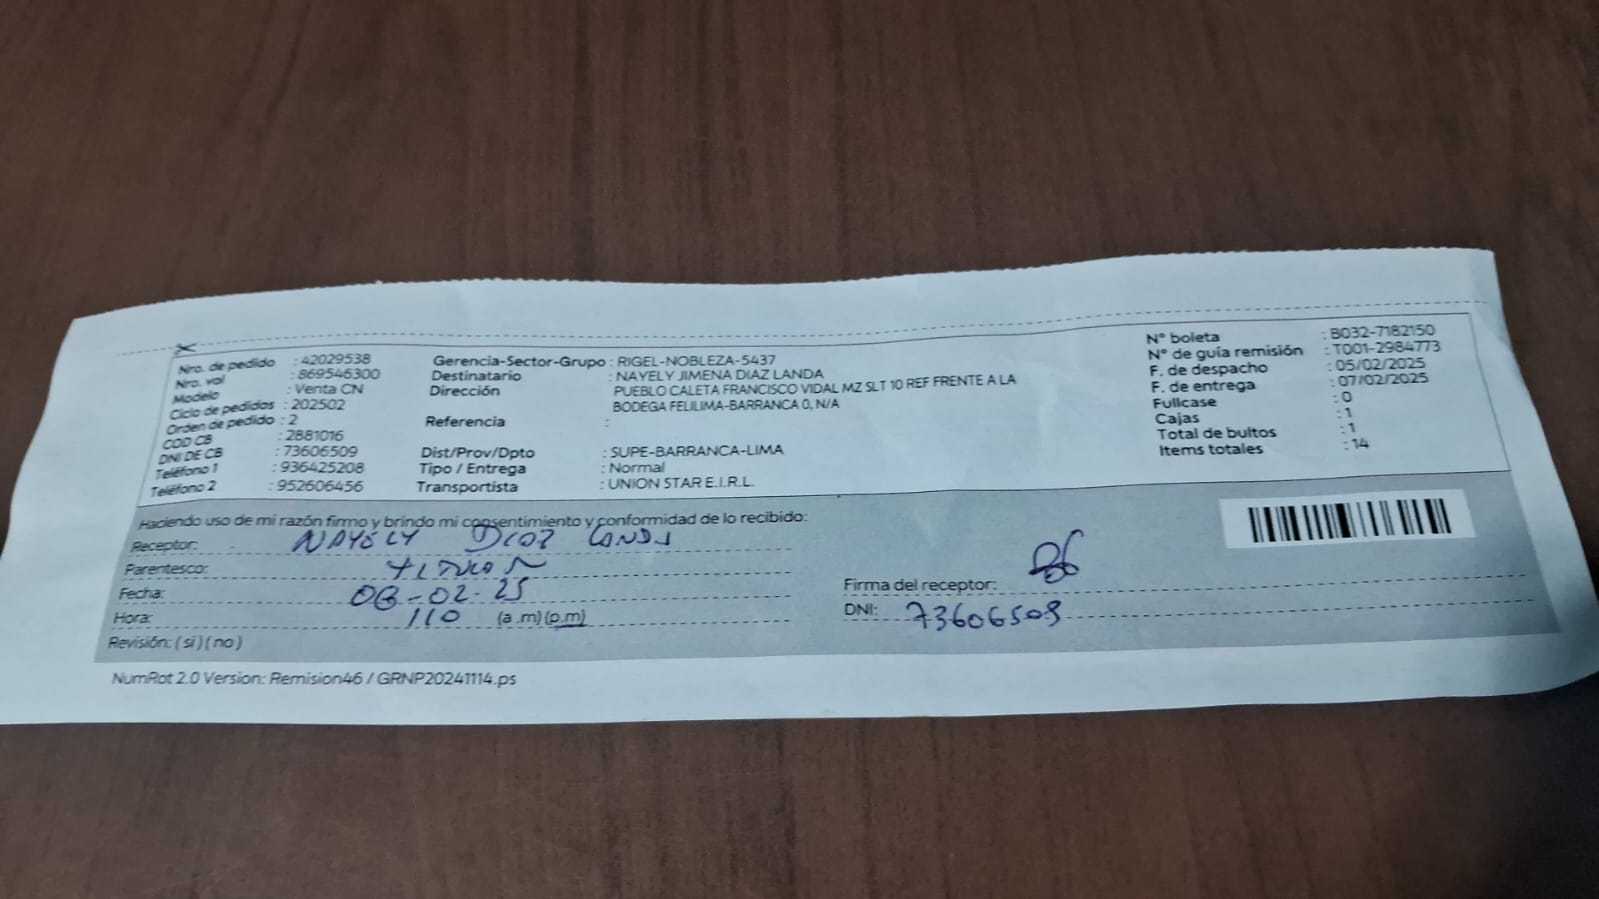 Nro. de pedido : 42029538
Nro. vol : 869546300
Modelo : Venta CN
Ciclo de pedidos : 202502
Orden de pedido : 2
COD CB : 2881016
DNI DE CB : 73606509
Teléfono 1 : 936425208
Teléfono 2 : 952606456
Gerencia-Sector-Grupo : RIGEL-NOBLEZA-5437
Destinatario : NAYELY JIMENA DIAZ LANDA
Dirección PUEBLO CALETA FRANCISCO VIDAL MZ SLT 10 REF FRENTE A LA
BODEGA FELILIMA-BARRANCA 0, N/A
Referencia :
Dist/Prov/Dpto : SUPE-BARRANCA-LIMA
Tipo / Entrega : Normal
Transportista : UNION STAR E.I.R.L.
N° boleta : B032-7182150
N° de guía remisión : T001-2984773
F. de despacho : 05/02/2025
F. de entrega : 07/02/2025
Fullcase : 0
Cajas : 1
Total de bultos : 1
Items totales : 14
Haciendo uso de mi razón firmo y brindo mi consentimiento y conformidad de lo recibido:
Receptor: NAYELY DIAZ LANDA
Parentesco:
Fecha: 08-02-25
Hora: 110 (a .m) (p.m)
Revisión: ( si ) ( no )
Firma del receptor:
DNI: 73606509
NumRot 2.0 Version: Remision46 / GRNP20241114.ps